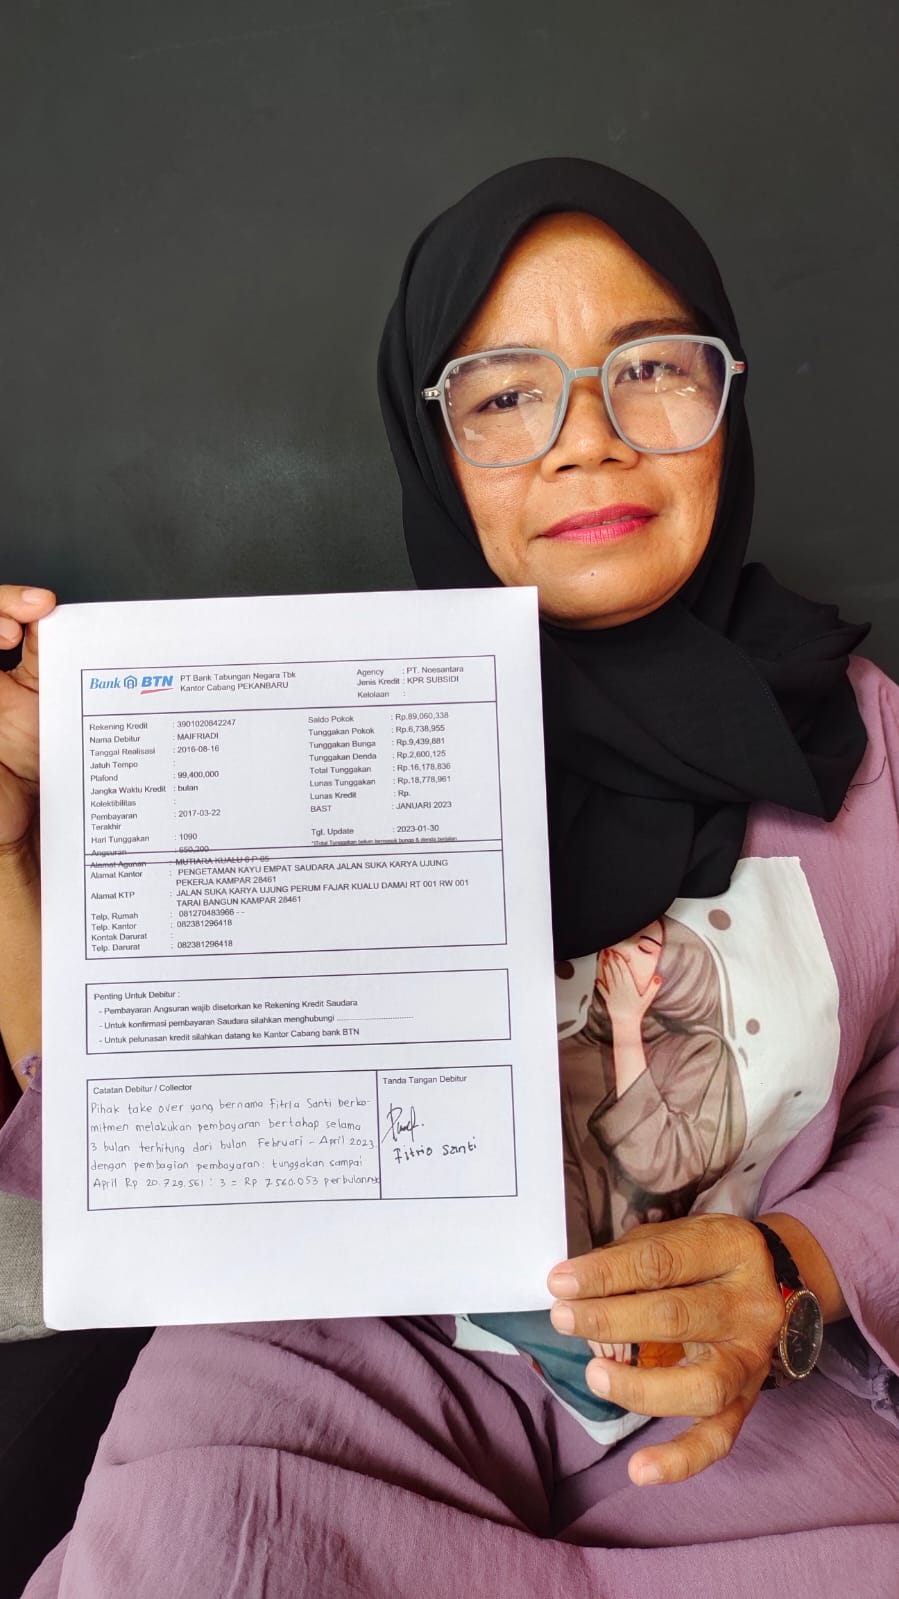 Bank BTN
PT Bank Tabungan Negara Tbk
Kantor Cabang PEKANBARU
Agency : PT. Noesantara
Jenis Kredit : KPR SUBSIDI
Kelolaan :
Rekening Kredit : 3901020842247
Nama Debitur : MAIFRIADI
Tanggal Realisasi : 2016-08-16
Jatuh Tempo :
Plafond : 99,400,000
Jangka Waktu Kredit : bulan
Kolektibilitas :
Pembayaran Terakhir : 2017-03-22
Hari Tunggakan : 1090
Angsuran : 650,200
Saldo Pokok : Rp.89,060,338
Tunggakan Pokok : Rp.6,738,955
Tunggakan Bunga : Rp.9,439,881
Tunggakan Denda : Rp.2,600,125
Total Tunggakan : Rp.16,178,836
Lunas Tunggakan : Rp.18,778,961
Lunas Kredit : Rp.
BAST : JANUARI 2023
Tgl. Update : 2023-01-30
Alamat Agunan : MUTIARA KUALU 6 P 05
Alamat Kantor : PENGETAMAN KAYU EMPAT SAUDARA JALAN SUKA KARYA UJUNG
PEKERJA KAMPAR 28461
Alamat KTP : JALAN SUKA KARYA UJUNG PERUM FAJAR KUALU DAMAI RT 001 RW 001
TARAI BANGUN KAMPAR 28461
Telp. Rumah : 081270483966 - -
Telp. Kantor : 082381296418
Kontak Darurat :
Telp. Darurat : 082381296418
Penting Untuk Debitur :
- Pembayaran Angsuran wajib disetorkan ke Rekening Kredit Saudara
- Untuk konfirmasi pembayaran Saudara silahkan menghubungi ................................
- Untuk pelunasan kredit silahkan datang ke Kantor Cabang bank BTN
Catatan Debitur / Collector
Pihak take over yang bernama Fitria Santi berko-
mitmen melakukan pembayaran bertahap selama
3 bulan terhitung dari bulan Februari - April 2023.
dengan pembagian pembayaran: tunggakan sampai
April Rp 20.729.561 : 3 = Rp 7.560.053 perbulannya
Tanda Tangan Debitur
Fitria Santi